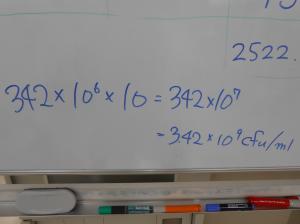 2522.
342 × 10⁶ × 10 = 342 × 10⁷
= 3.42 × 10⁹ cfu/ml